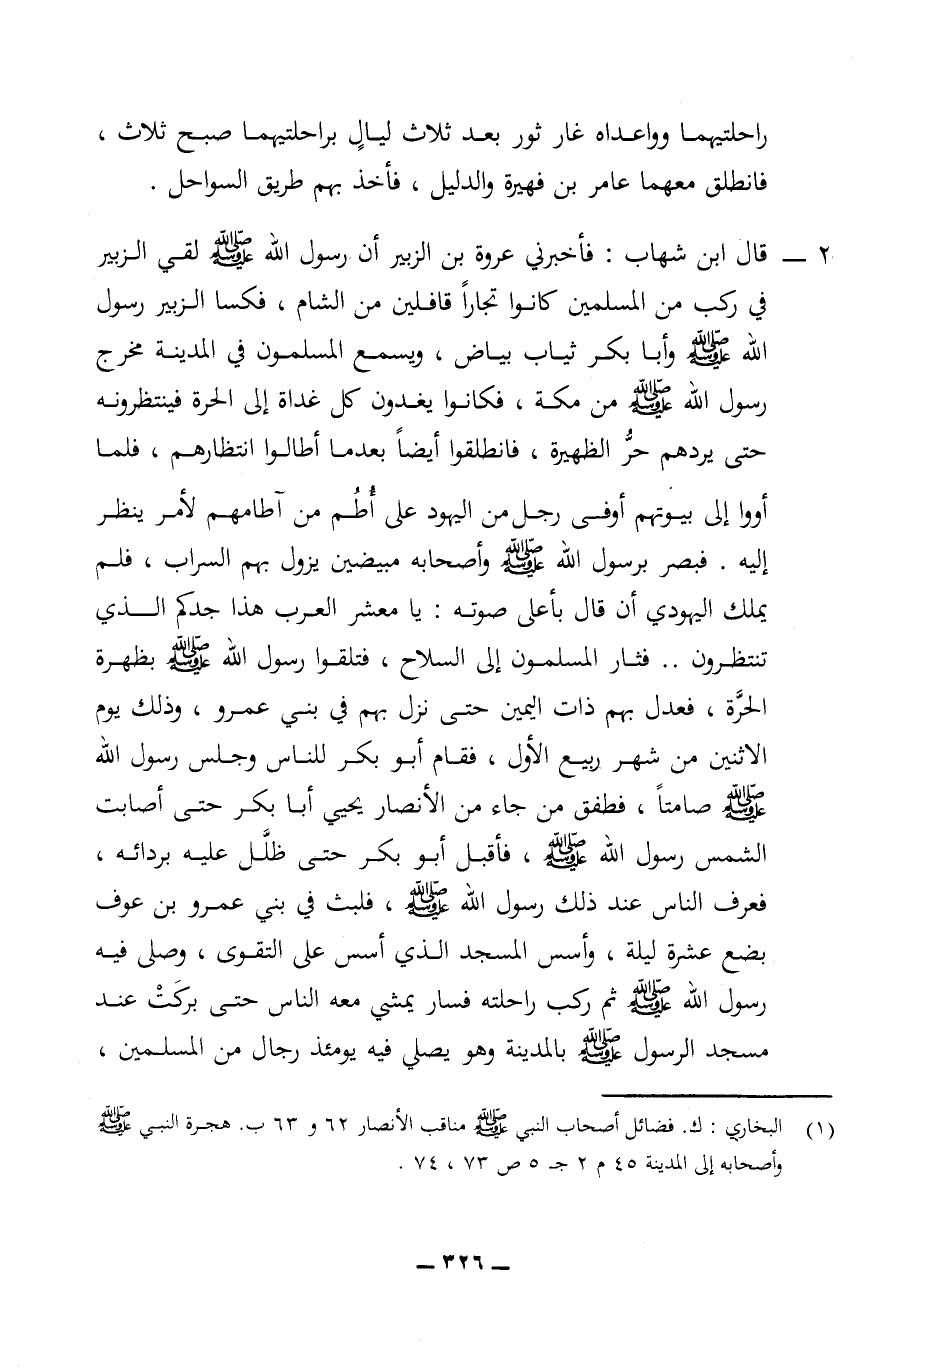 راحلتيهما وواعداه غار ثور بعد ثلاث ليالٍ براحلتيهما صبح ثلاث ،
فانطلق معهما عامر بن فهيرة والدليل ، فأخذ بهم طريق السواحل .
٢ — قال ابن شهاب : فأخبرني عروة بن الزبير أن رسول الله ﷺ لقي الزبير
في ركب من المسلمين كانوا تجاراً قافلين من الشام ، فكسا الزبير رسول
الله ﷺ وأبا بكر ثياب بياض ، ويسمع المسلمون في المدينة مخرج
رسول الله ﷺ من مكة ، فكانوا يغدون كل غداة إلى الحرة فينتظرونه
حتى يردهم حرُّ الظهيرة ، فانطلقوا أيضاً بعدما أطالوا انتظارهم ، فلما
أووا إلى بيوتهم أوفى رجل من اليهود على أُطُم من آطامهم لأمر ينظر
إليه . فبصر برسول الله ﷺ وأصحابه مبيضين يزول بهم السراب ، فلم
يملك اليهودي أن قال بأعلى صوته : يا معشر العرب هذا جدكم الذي
تنتظرون .. فثار المسلمون إلى السلاح ، فتلقوا رسول الله ﷺ بظهرة
الحرَّة ، فعدل بهم ذات اليمين حتى نزل بهم في بني عمرو ، وذلك يوم
الاثنين من شهر ربيع الأول ، فقام أبو بكر للناس وجلس رسول الله
ﷺ صامتاً ، فطفق من جاء من الأنصار يحيي أبا بكر حتى أصابت
الشمس رسول الله ﷺ ، فأقبل أبو بكر حتى ظلَّل عليه بردائه ،
فعرف الناس عند ذلك رسول الله ﷺ ، فلبث في بني عمرو بن عوف
بضع عشرة ليلة ، وأسس المسجد الذي أسس على التقوى ، وصلى فيه
رسول الله ﷺ ثم ركب راحلته فسار يمشي معه الناس حتى بركَتْ عند
مسجد الرسول ﷺ بالمدينة وهو يصلي فيه يومئذ رجال من المسلمين ،
(١) البخاري : ك. فضائل أصحاب النبي ﷺ مناقب الأنصار ٦٢ و ٦٣ ب. هجرة النبي ﷺ
وأصحابه إلى المدينة ٤٥ م ٢ جـ ٥ ص ٧٣ ، ٧٤ .
— ٣٢٦ —